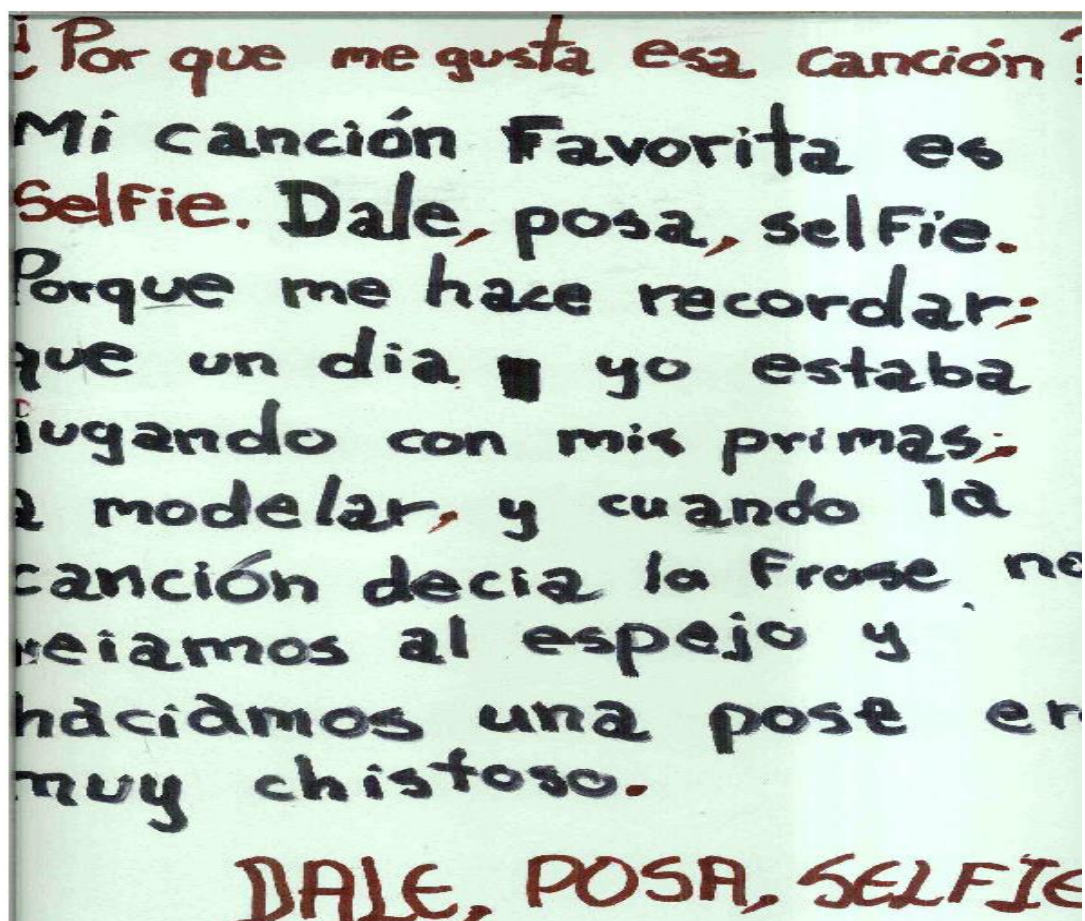 ¿Por que me gusta esa canción?
Mi canción Favorita es
Selfie. Dale, posa, selfie.
Porque me hace recordar;
que un dia yo estaba
jugando con mis primas;
a modelar, y cuando la
canción decia la Frase no
veiamos al espejo y
haciamos una pose er
muy chistoso.
DALE, POSA, SELFIE